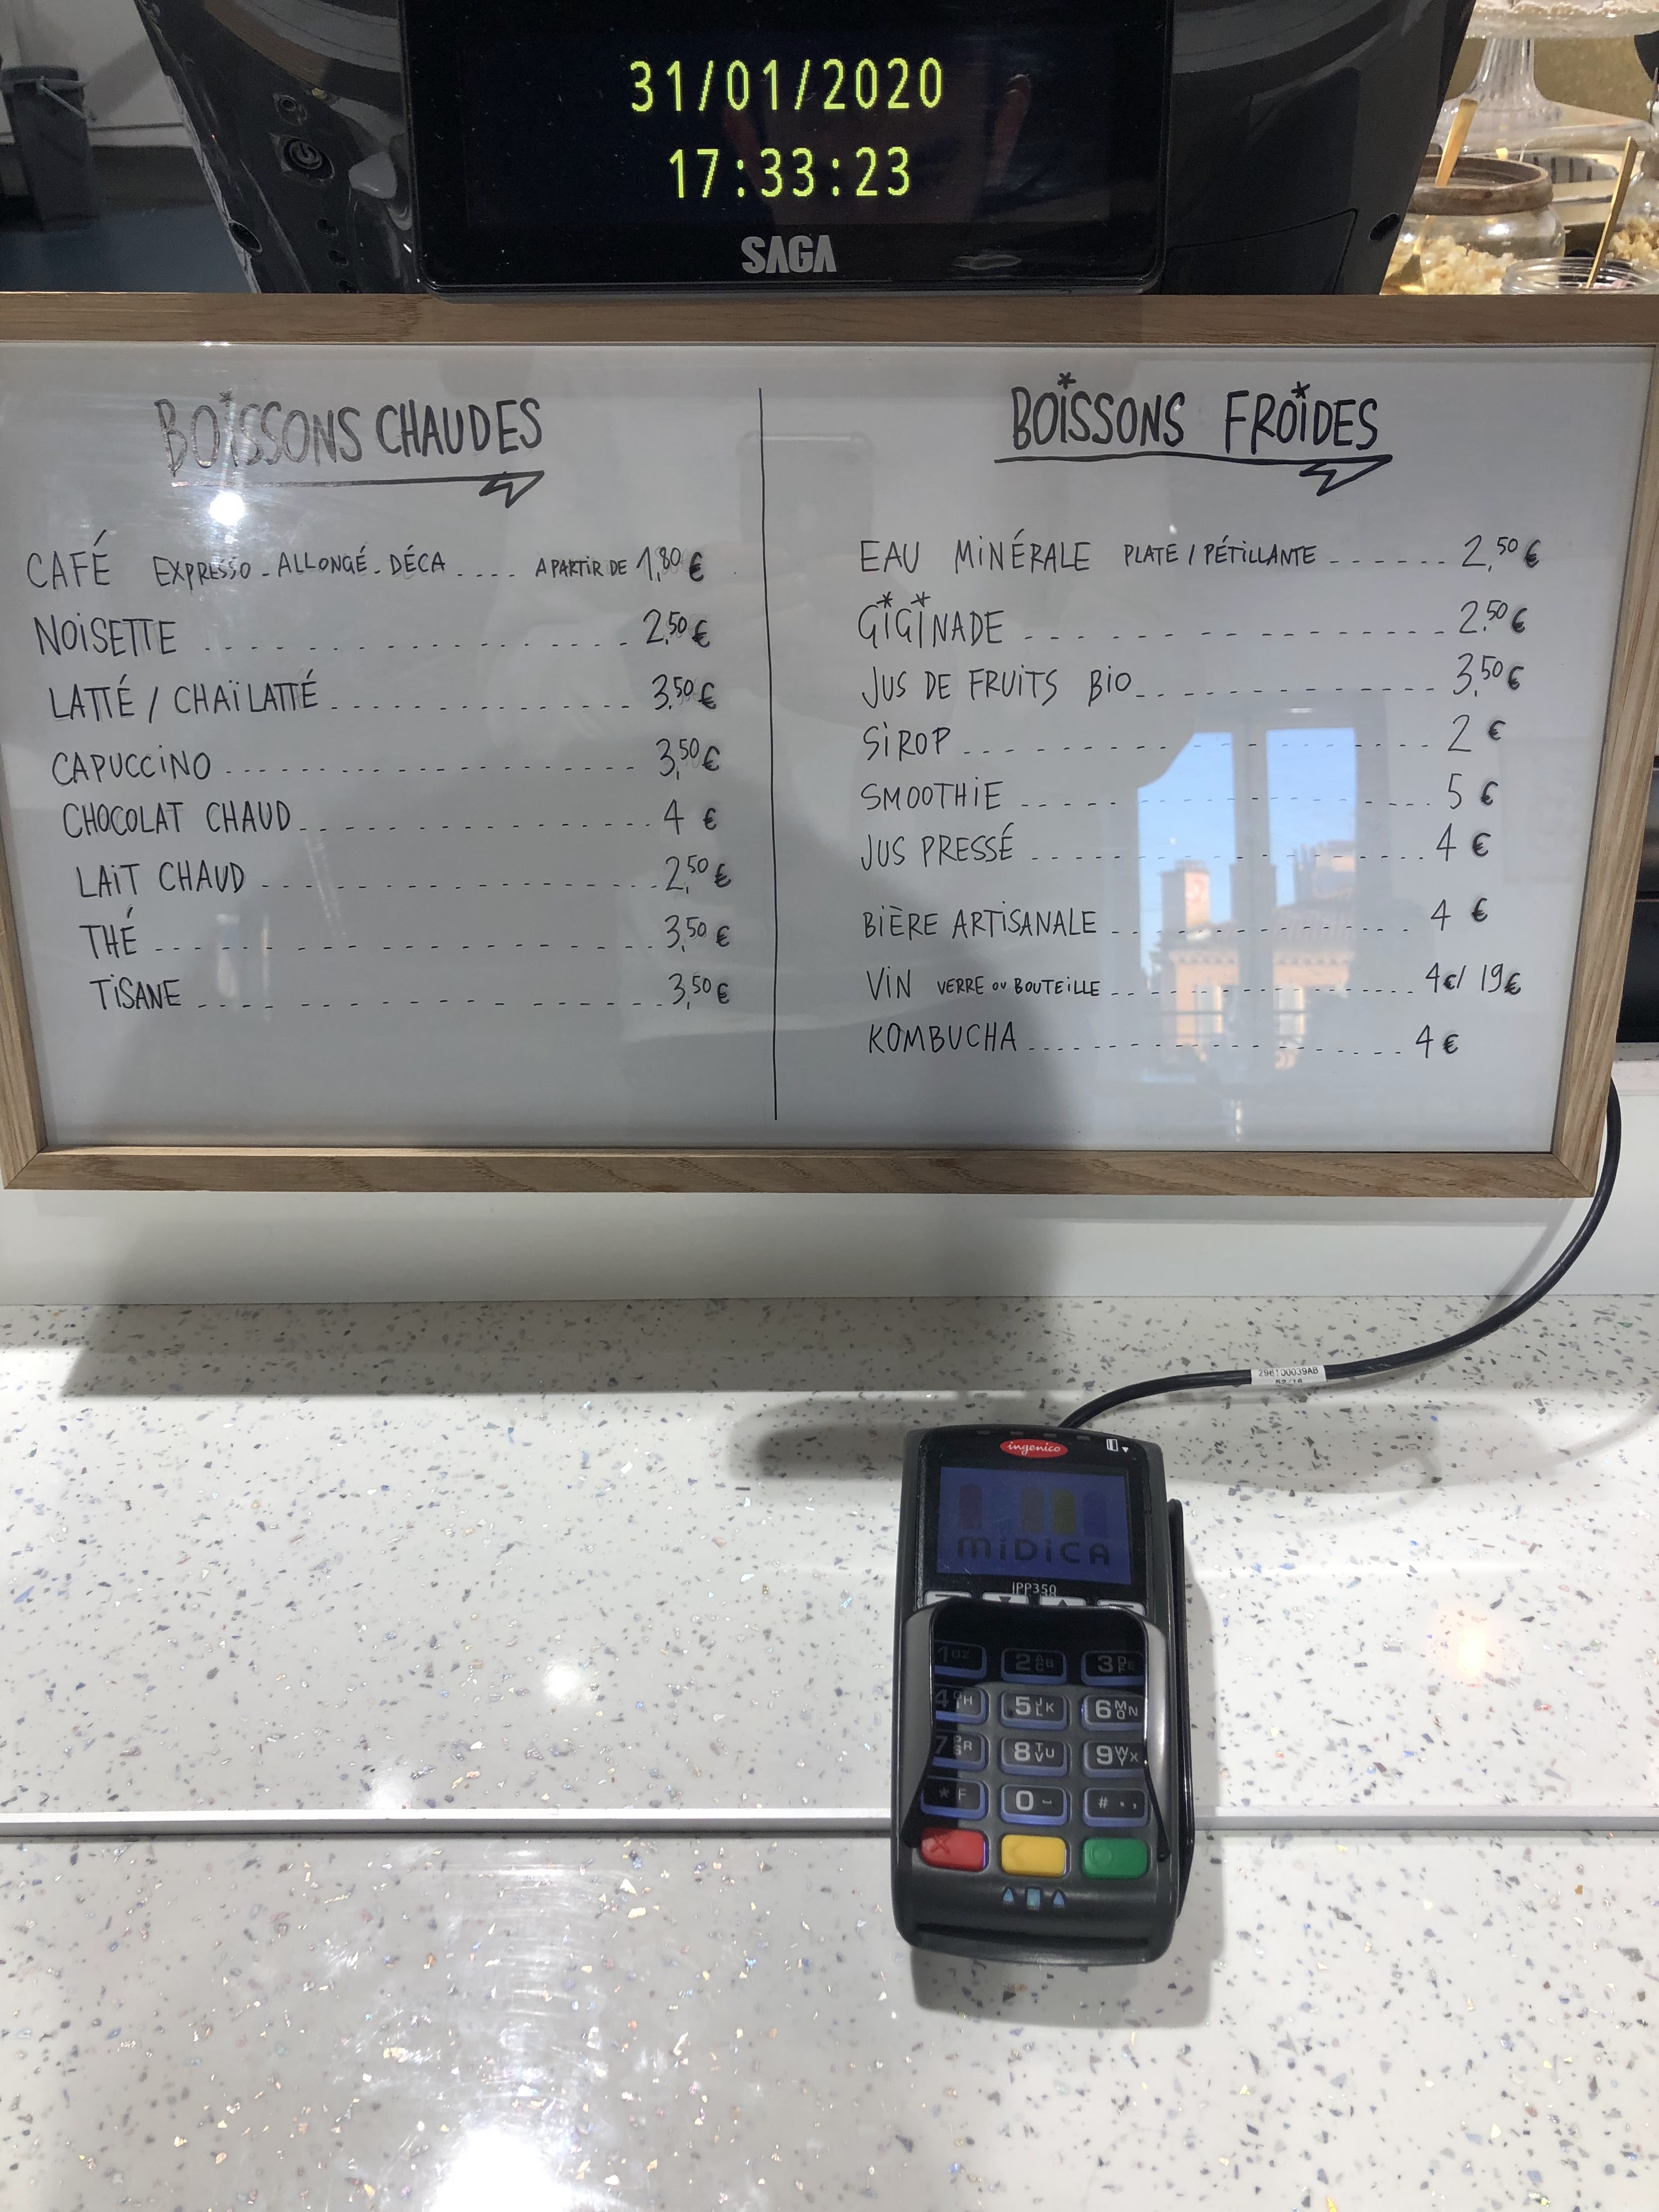 31/01/2020
17:33:23
SAGA
BOISSONS CHAUDES
CAFÉ EXPRESSO - ALLONGÉ - DÉCA .... A PARTIR DE 1,80 €
NOISETTE ........ 2,50 €
LATTÉ / CHAÏ LATTÉ ........ 3,50 €
CAPUCCINO ........ 3,50 €
CHOCOLAT CHAUD ........ 4 €
LAIT CHAUD ........ 2,50 €
THÉ ........ 3,50 €
TISANE ........ 3,50 €
BOISSONS FROIDES
EAU MINÉRALE PLATE / PÉTILLANTE ...... 2,50 €
GIGINADE ........ 2,50 €
JUS DE FRUITS BIO ........ 3,50 €
SIROP ........ 2 €
SMOOTHIE ........ 5 €
JUS PRESSÉ ........ 4 €
BIÈRE ARTISANALE ........ 4 €
VIN VERRE OU BOUTEILLE ........ 4€/ 19€
KOMBUCHA ........ 4 €
296100039AB
ingenico
MIDICA
IPP350
1 QZ 2 ABC 3 DEF
4 GH 5 JKL 6 MNO
7 PRS 8 TUV 9 WXY
* F 0 - # . ,